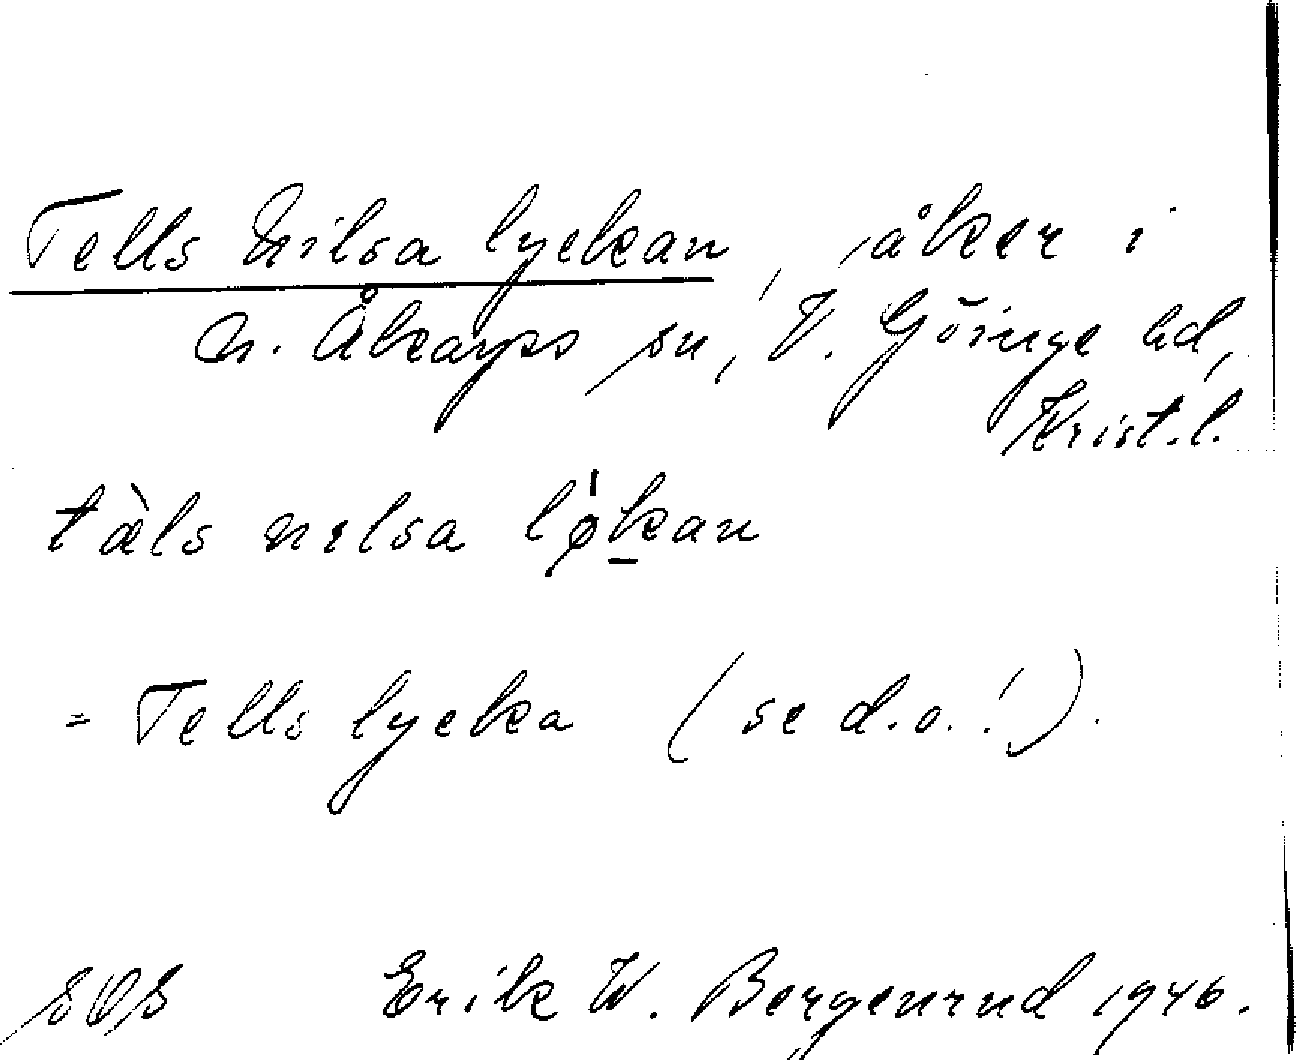 Tells Nilsa lyckan, åker i
N. Åkarps sn, V. Göinge hd,
Krist.l.
tàls nilsa lǿkan
= Tells lycka (se d.o.!).
SOS Erik W. Bergenrud 1946.